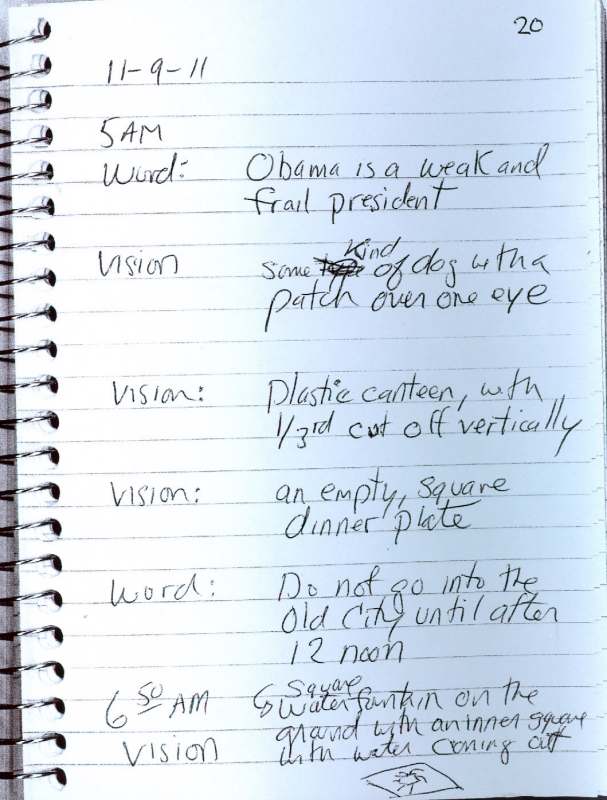 20
11-9-11
5AM
Word: Obama is a weak and
frail president
Vision some kind of dog with a
patch over one eye
Vision: Plastic canteen, with
1/3rd cut off vertically
Vision: an empty, square
dinner plate
Word: Do not go into the
Old City until after
12 noon
6 50 AM Square
Water funtain on the
Vision ground with an inner square
with water coming out